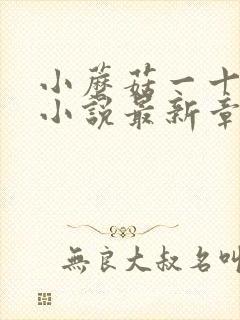 小蘑菇一十
小說最新章
無良大叔名叫